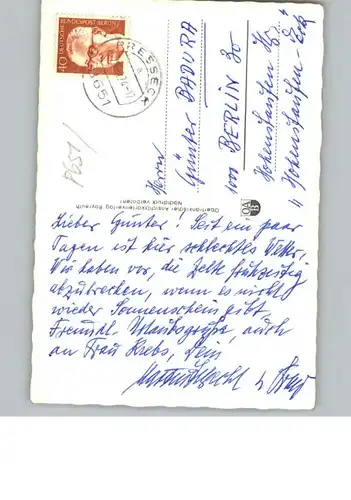 40
DEUTSCHE BUNDESPOST BERLIN
PRESSECK
8651
P651/
Herrn
Günter BADURA
1000 BERLIN 30
Hohenstaufen
" Hohenstaufen Eck "
Oberfränkischer Ansichtskartenverlag Bayreuth
Nachdruck verboten!
Lieber Günter! Seit ein paar
Tagen ist hier schlechtes Wetter,
Wir haben vor, die Zelte frühzeitig
abzubrechen, wenn es nicht
wieder Sonnenschein gibt.
Freundl. Urlaubsgrüße, auch
an Frau Krebs, Dein